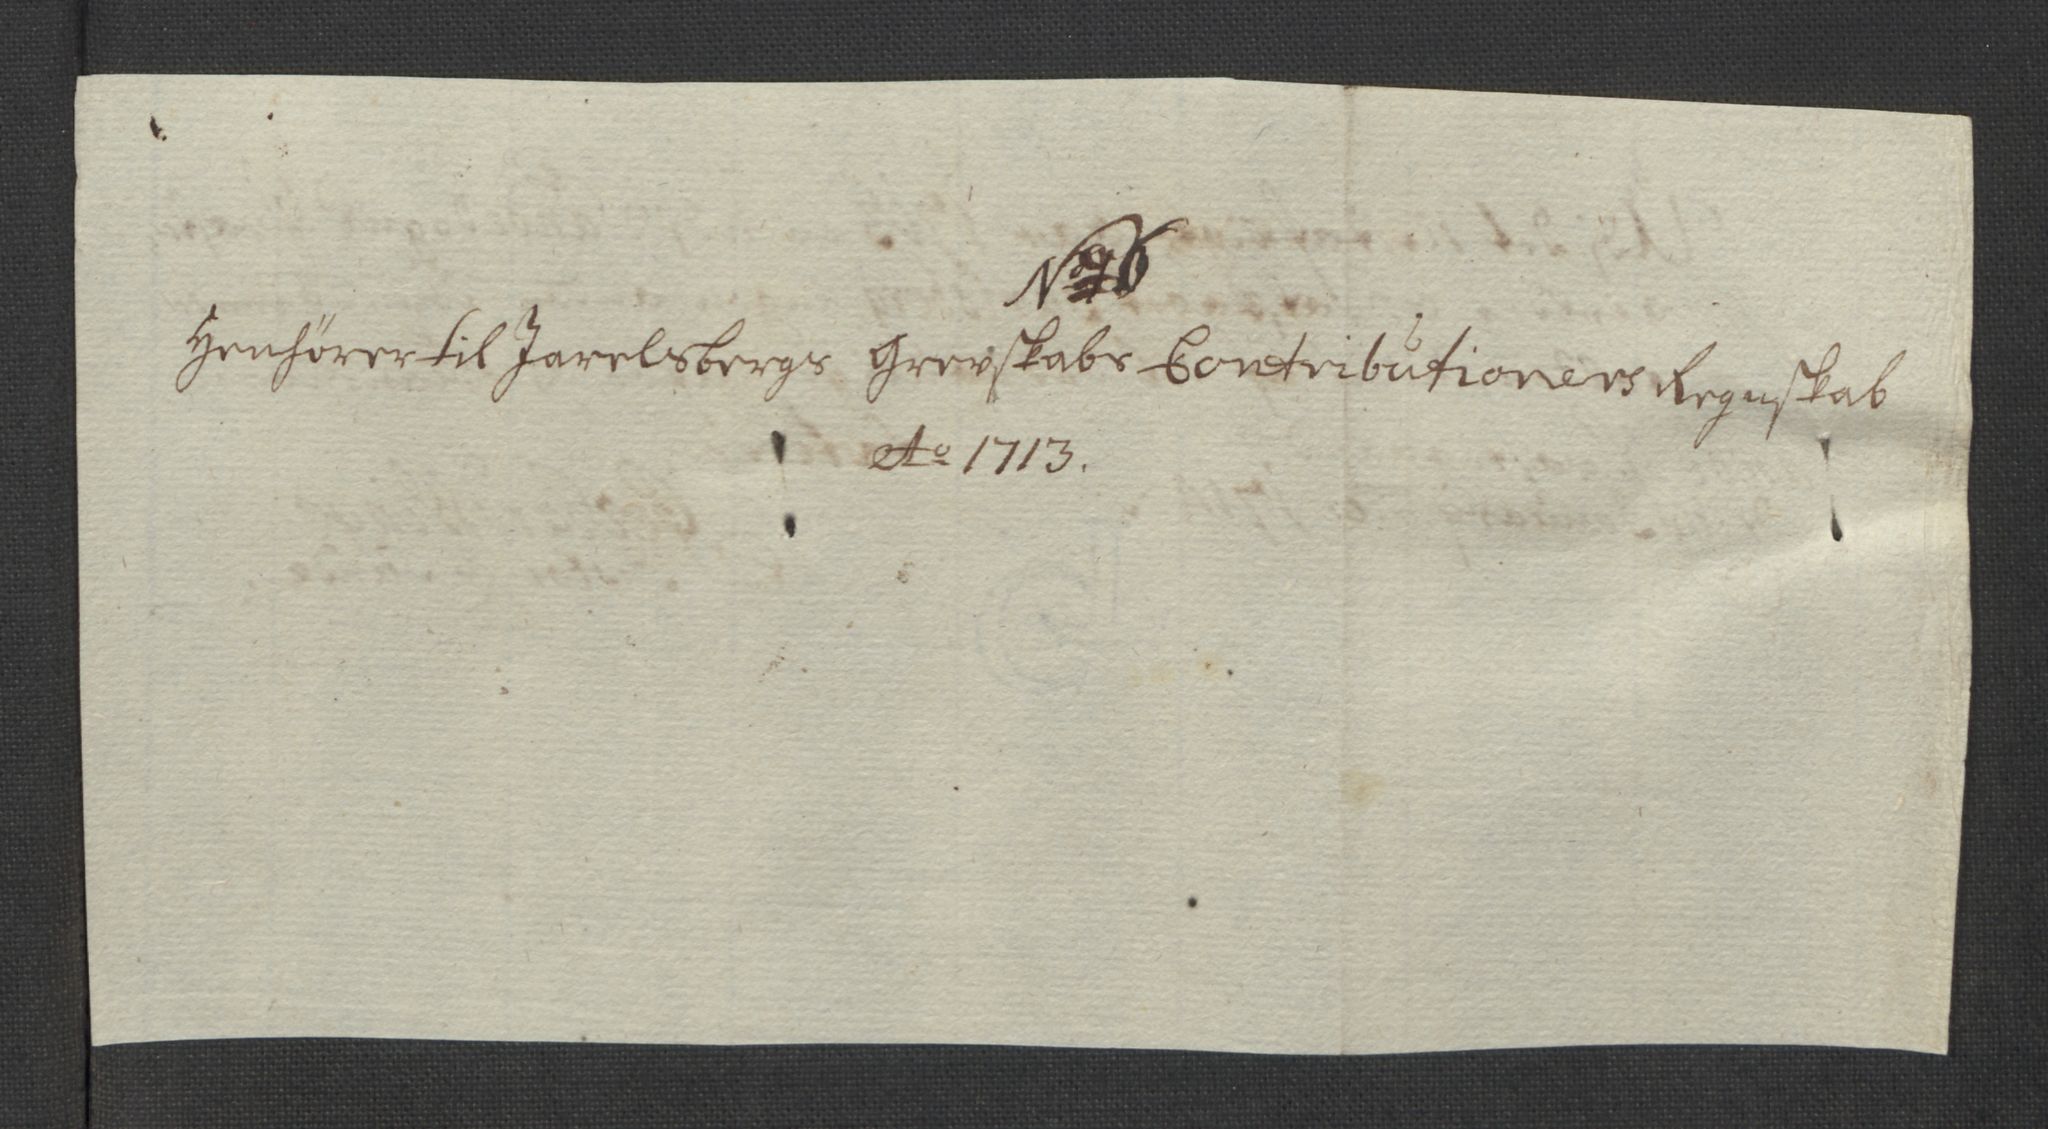 No 6
Henhörer til Jarelsbergs Grevskabs Contributioners Regnskab
Ao 1713.